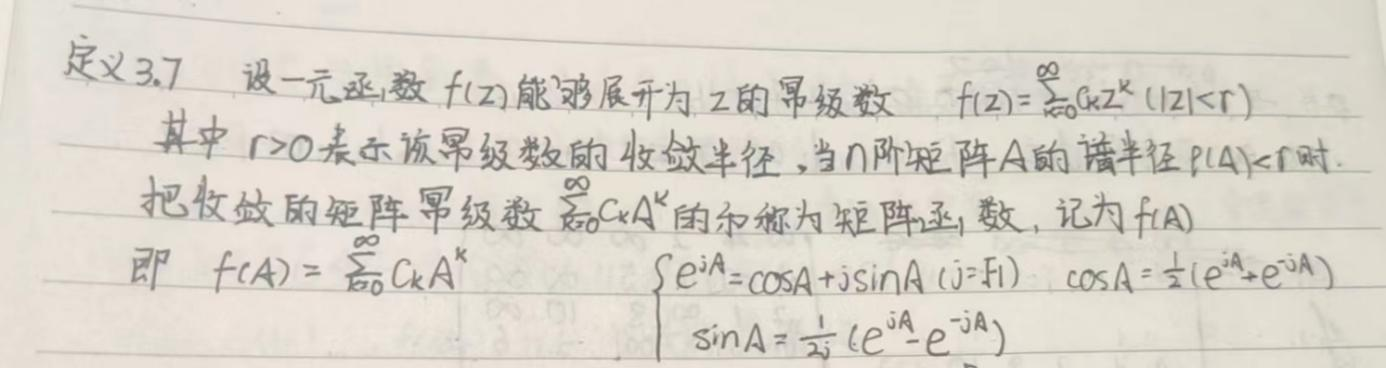 定义3.7 设一元函数 f(z)能够展开为 z的幂级数 f(z)=∑_{k=0}^{∞}C_kz^k (|z|<r)
其中 r>0表示该幂级数的收敛半径,当n阶矩阵A的谱半径ρ(A)<r时.
把收敛的矩阵幂级数∑_{k=0}^{∞}C_kA^k的和称为矩阵函数,记为f(A)
即 f(A)=∑_{k=0}^{∞}C_kA^k { e^{jA}=cosA+jsinA (j=√-1) cosA=½(e^{jA}+e^{-jA})
sinA=\frac{1}{2j}(e^{jA}-e^{-jA})